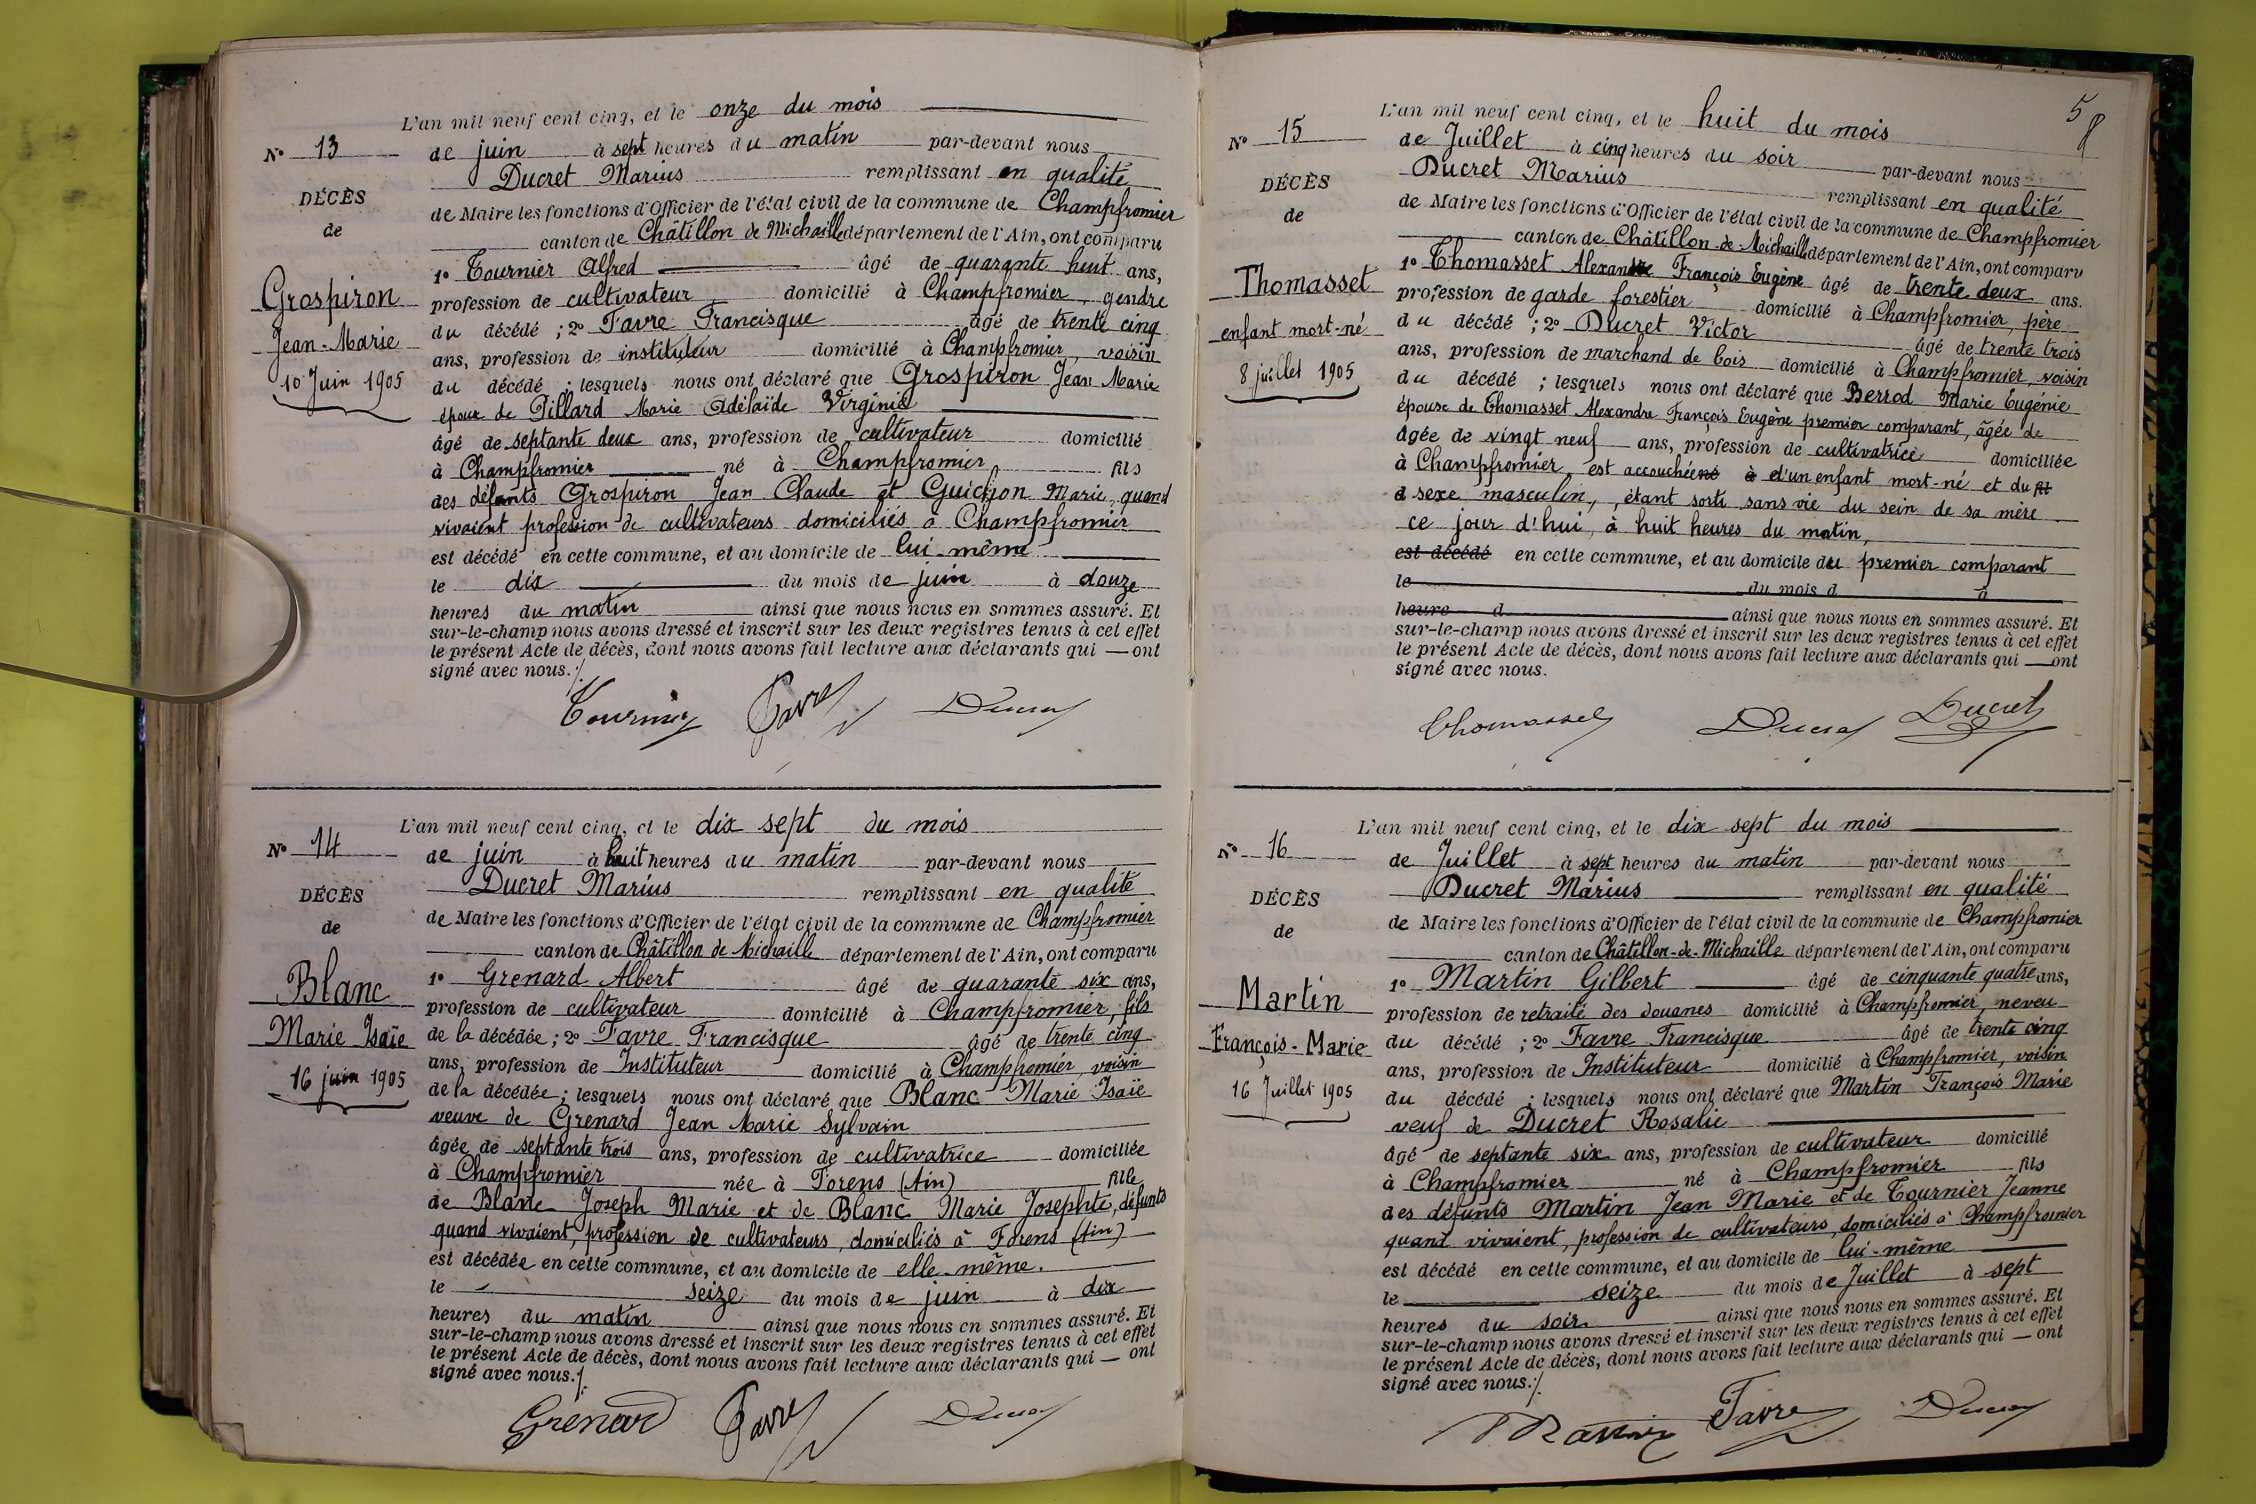 L'an mil neuf cent cinq, et le onze du mois
N° 13
de juin à sept heures du matin par-devant nous
Ducret Marius remplissant en qualité
DÉCÈS
de Maire les fonctions d'Officier de l'état civil de la commune de Champfromier
de
canton de Châtillon de Michaille département de l'Ain, ont comparu
1° Tournier Alfred âgé de quarante huit ans,
Grospiron
profession de cultivateur domicilié à Champfromier, gendre
du décédé ; 2° Favre Francisque âgé de trente cinq
Jean-Marie
ans, profession de instituteur domicilié à Champfromier, voisin
10 Juin 1905
du décédé ; lesquels nous ont déclaré que Grospiron Jean Marie
époux de Pillard Marie Adélaïde Virginie
âgé de septante deux ans, profession de cultivateur domicilié
à Champfromier né à Champfromier fils
des défunts Grospiron Jean Claude et Guichon Marie, quand
vivaient profession de cultivateurs domiciliés à Champfromier
est décédé en cette commune, et au domicile de lui-même
le dix du mois de juin à douze
heures du matin ainsi que nous nous en sommes assuré. Et
sur-le-champ nous avons dressé et inscrit sur les deux registres tenus à cet effet
le présent Acte de décès, dont nous avons fait lecture aux déclarants qui — ont
signé avec nous./.
Tournier Favre Ducret
L'an mil neuf cent cinq, et le dix sept du mois
N° 14
de juin à huit heures du matin par-devant nous
Ducret Marius remplissant en qualité
DÉCÈS
de Maire les fonctions d'Officier de l'état civil de la commune de Champfromier
de
canton de Châtillon de Michaille département de l'Ain, ont comparu
1° Grenard Albert âgé de quarante six ans,
Blanc
profession de cultivateur domicilié à Champfromier, fils
Marie Isaïe
de la décédée ; 2° Favre Francisque âgé de trente cinq
ans, profession de Instituteur domicilié à Champfromier, voisin
16 juin 1905
de la décédée ; lesquels nous ont déclaré que Blanc Marie Isaïe
veuve de Grenard Jean Marie Sylvain
âgée de septante trois ans, profession de cultivatrice domiciliée
à Champfromier née à Forens (Ain) fille
de Blanc Joseph Marie et de Blanc Marie Josephte, défunts
quand vivaient, profession de cultivateurs, domiciliés à Forens (Ain)
est décédée en cette commune, et au domicile de elle-même.
le seize du mois de juin à dix
heures du matin ainsi que nous nous en sommes assuré. Et
sur-le-champ nous avons dressé et inscrit sur les deux registres tenus à cet effet
le présent Acte de décès, dont nous avons fait lecture aux déclarants qui — ont
signé avec nous./.
Grenard Favre Ducret
58
L'an mil neuf cent cinq, et le huit du mois
N° 15
de Juillet à cinq heures du soir par-devant nous
Ducret Marius remplissant en qualité
DÉCÈS
de Maire les fonctions d'Officier de l'état civil de la commune de Champfromier
de
canton de Châtillon-de-Michaille département de l'Ain, ont comparu
1° Thomasset Alexandre François Eugène âgé de trente deux ans.
Thomasset
profession de garde forestier domicilié à Champfromier, père
enfant mort-né
du décédé ; 2° Ducret Victor âgé de trente trois
ans, profession de marchand de bois domicilié à Champfromier, voisin
8 juillet 1905
du décédé ; lesquels nous ont déclaré que Berrod Marie Eugénie
épouse de Thomasset Alexandre François Eugène premier comparant, âgée de
âgée de vingt neuf ans, profession de cultivatrice domiciliée
à Champfromier, est accouchée né à d'un enfant mort-né et du fil
d sexe masculin, étant sorti sans vie du sein de sa mère
ce jour d'hui, à huit heures du matin,
est décédé en cette commune, et au domicile du premier comparant
le du mois d à
heure d ainsi que nous nous en sommes assuré. Et
sur-le-champ nous avons dressé et inscrit sur les deux registres tenus à cet effet
le présent Acte de décès, dont nous avons fait lecture aux déclarants qui — ont
signé avec nous.
Thomasset Ducret Ducret
L'an mil neuf cent cinq, et le dix sept du mois
N° 16
de Juillet à sept heures du matin par-devant nous
Ducret Marius remplissant en qualité
DÉCÈS
de Maire les fonctions d'Officier de l'état civil de la commune de Champfromier
de
canton de Châtillon-de-Michaille département de l'Ain, ont comparu
1° Martin Gilbert âgé de cinquante quatre ans,
Martin
profession de retraité des douanes domicilié à Champfromier, neveu
François-Marie
du décédé ; 2° Favre Francisque âgé de trente cinq
ans, profession de Instituteur domicilié à Champfromier, voisin
16 Juillet 1905
du décédé ; lesquels nous ont déclaré que Martin François Marie
veuf de Ducret Rosalie
âgé de septante six ans, profession de cultivateur domicilié
à Champfromier né à Champfromier fils
des défunts Martin Jean Marie et de Tournier Jeanne
quand vivaient, profession de cultivateurs, domiciliés à Champfromier
est décédé en cette commune, et au domicile de lui-même
le seize du mois de Juillet à sept
heures du soir ainsi que nous nous en sommes assuré. Et
sur-le-champ nous avons dressé et inscrit sur les deux registres tenus à cet effet
le présent Acte de décès, dont nous avons fait lecture aux déclarants qui — ont
signé avec nous./.
Martin Favre Ducret